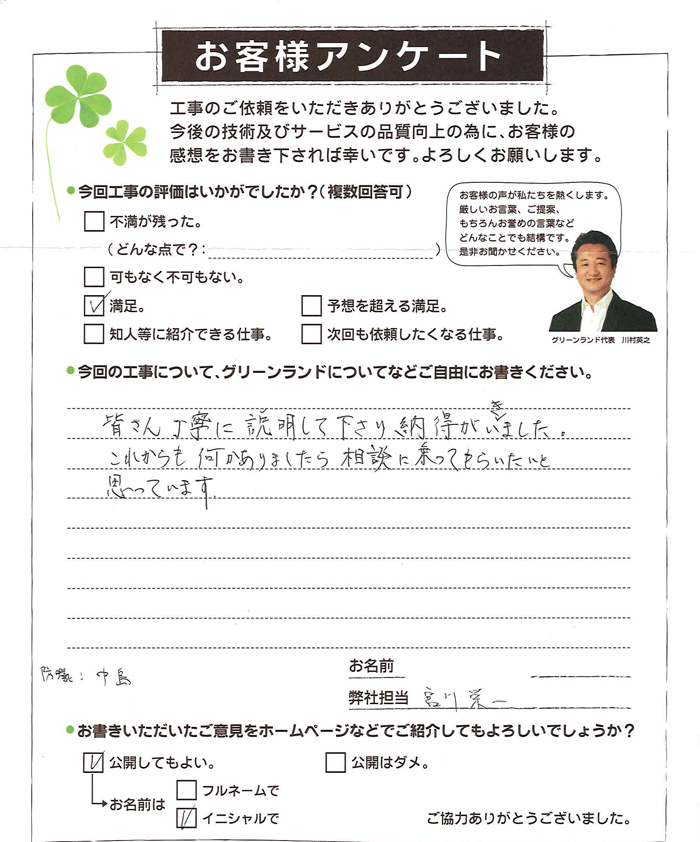 お客様アンケート
工事のご依頼をいただきありがとうございました。
今後の技術及びサービスの品質向上の為に、お客様の
感想をお書き下されば幸いです。よろしくお願いします。
●今回工事の評価はいかがでしたか？（複数回答可）
不満が残った。
（どんな点で？：　）
可もなく不可もない。
満足。
予想を超える満足。
知人等に紹介できる仕事。
次回も依頼したくなる仕事。
お客様の声が私たちを熱くします。
厳しいお言葉、ご提案、
もちろんお誉めの言葉など
どんなことでも結構です。
是非お聞かせください。
グリーンランド代表　川村英之
●今回の工事について、グリーンランドについてなどご自由にお書きください。
皆さん丁寧に説明して下さり納得がいきました。
これからも何かありましたら相談に乗ってもらいたいと
思っています。
中島
お名前
弊社担当 宮川栄一
●お書きいただいたご意見をホームページなどでご紹介してもよろしいでしょうか？
公開してもよい。
公開はダメ。
お名前は
フルネームで
イニシャルで
ご協力ありがとうございました。